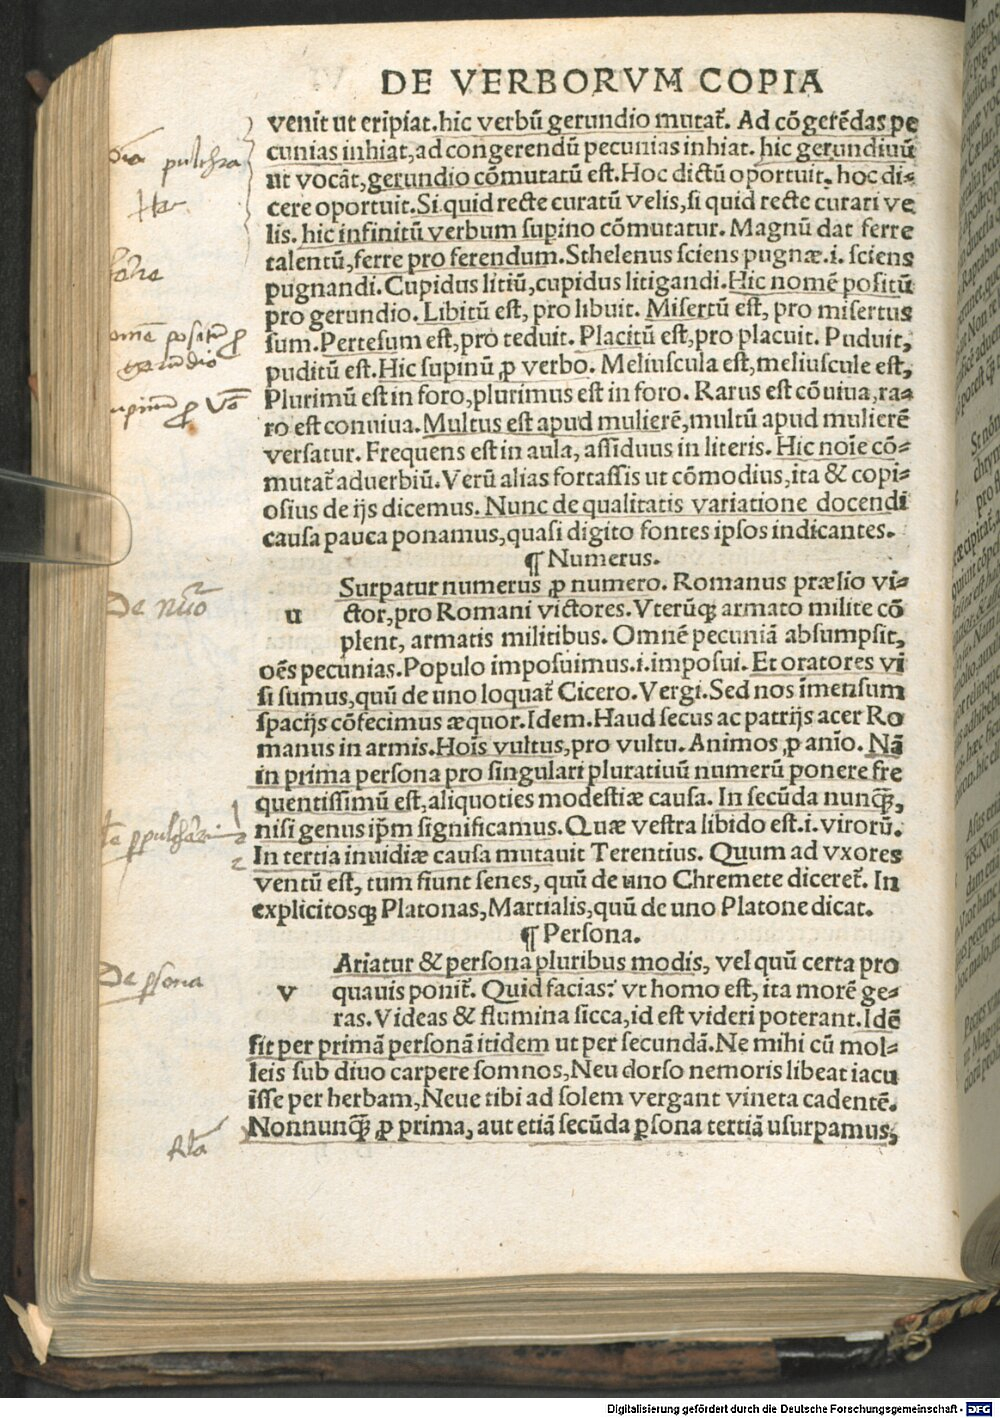 DE VERBORVM COPIA
venit ut eripiat.hic verbũ gerundio mutat᷑. Ad cõgerẽdas pe
cunias inhiat,ad congerendũ pecunias inhiat. hic gerundiuũ
ut vocãt,gerundio cõmutatũ est.Hoc dictũ oportuit. hoc di⸗
cere oportuit.Si quid recte curatũ velis,si quid recte curari ve
lis. hic infinitũ verbum supino cõmutatur. Magnũ dat ferre
talentũ,ferre pro ferendum.Sthelenus sciens pugnæ.i. sciens
pugnandi.Cupidus litiũ,cupidus litigandi.Hic nomẽ positũ
pro gerundio. Libitũ est, pro libuit. Misertũ est, pro misertus
sum.Pertesum est,pro teduit. Placitũ est,pro placuit. Puduit,
puditũ est.Hic supinũ ꝓ verbo. Meliuscula est,meliuscule est,
Plurimũ est in foro,plurimus est in foro. Rarus est cõuiua,ra⸗
ro est conuiua.Multus est apud mulierẽ,multũ apud mulierẽ
versatur. Frequens est in aula, assiduus in literis. Hic noĩe cõ⸗
mutat᷑ aduerbiũ.Verũ alias fortassis ut cõmodius,ita & copi⸗
osius de ijs dicemus. Nunc de qualitatis variatione docendi
causa pauca ponamus,quasi digito fontes ipsos indicantes.
¶ Numerus.
Surpatur numerus ꝓ numero. Romanus prælio vi⸗
u ctor,pro Romani victores.Vterũqꝫ armato milite cõ
plent, armatis militibus. Omnẽ pecuniã absumpsit,
oẽs pecunias.Populo imposuimus.i.imposui. Et oratores vi
si sumus,quũ de uno loquat᷑ Cicero.Vergi.Sed nos ĩmensum
spacijs cõfecimus æquor.Idem.Haud secus ac patrijs acer Ro
manus in armis.Hoĩs vultus,pro vultu. Animos ꝓ anĩo. Nã
in prima persona pro singulari pluratiuũ numerũ ponere fre
quentissimũ est,aliquoties modestiæ causa. In secũda nunqꝫ̃,
nisi genus ip̃m significamus.Quæ vestra libido est.i. virorũ.
In tertia inuidiæ causa mutauit Terentius. Quum ad vxores
ventũ est, tum fiunt senes, quũ de uno Chremete diceret᷑. In
explicitosqꝫ Platonas,Martialis,quũ de uno Platone dicat.
¶ Persona.
Ariatur & persona pluribus modis, vel quũ certa pro
v quauis ponit᷑. Quid facias? vt homo est, ita morẽ ge⸗
ras.Videas & flumina sicca,id est videri poterant.Idẽ
fit per primã personã itidem ut per secundã.Ne mihi cũ mol⸗
leis sub diuo carpere somnos,Neu dorso nemoris libeat iacu
isse per herbam,Neue tibi ad solem vergant vineta cadentẽ.
Nonnunqꝫ̃ ꝓ prima, aut etiã secũda ꝑsona tertiã usurpamus,
pulchra
positum ꝓ
gerundio
De
De ꝑsona
Digitalisierung gefördert durch die Deutsche Forschungsgemeinschaft - DFG